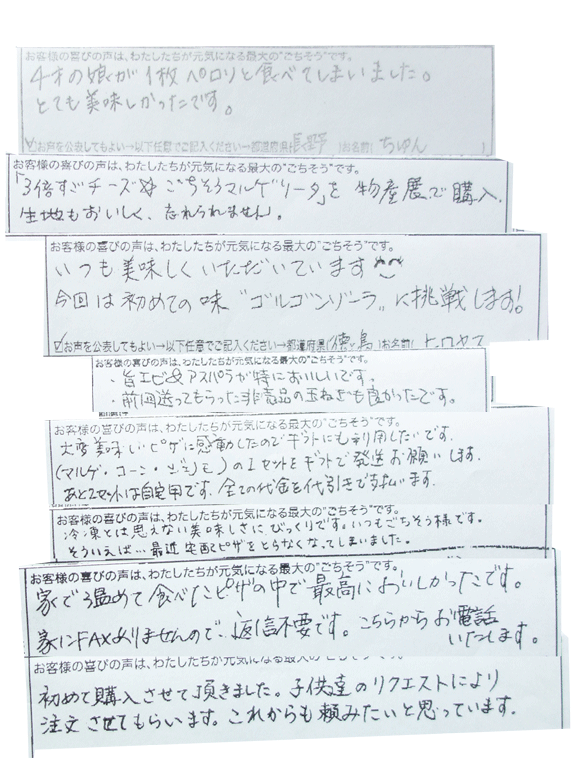 お客様の喜びの声は、わたしたちが元気になる最大の"ごちそう"です。
4才の娘が1枚ペロリと食べてしまいました。
とても美味しかったです。
お声を公表してもよい→以下任意でご記入ください→都道府県(長野)お名前(ちゅん)
お客様の喜びの声は、わたしたちが元気になる最大の"ごちそう"です。
「3倍すごチーズ ごちそうマルゲリータ」を物産展で購入。
生地もおいしく、忘れられません。
お客様の喜びの声は、わたしたちが元気になる最大の"ごちそう"です。
いつも美味しくいただいています
今回は初めての味"ゴルゴンゾーラ"に挑戦します!
お声を公表してもよい→以下任意でご記入ください→都道府県(徳島)お名前(
お客様の喜びの声は、わたしたちが元気になる最大の"ごちそう"です。
・旨エビ&アスパラが特においしいです。
・前回送ってもらった非売品の玉ねぎも良かったです。
お客様の喜びの声は、わたしたちが元気になる最大の"ごちそう"です。
大変美味しいピザに感動したのでギフトにも利用したいです。
(マルゲ・コーン・)の1セットをギフトで発送お願いします。
あと2セットは自宅用です。全ての代金を代引きで支払います。
お客様の喜びの声は、わたしたちが元気になる最大の"ごちそう"です。
冷凍とは思えない美味しさにびっくりです。いつもごちそう様です。
そういえば…最近宅配ピザをとらなくなってしまいました。
お客様の喜びの声は、わたしたちが元気になる最大の"ごちそう"です。
家で温めて食べたピザの中で最高においしかったです。
家にFAXありませんので、返信不要です。こちらからお電話
いたします。
お客様の喜びの声は、わたしたちが元気になる最大の"ごちそう"です。
初めて購入させて頂きました。子供達のリクエストにより
注文させてもらいます。これからも頼みたいと思っています。